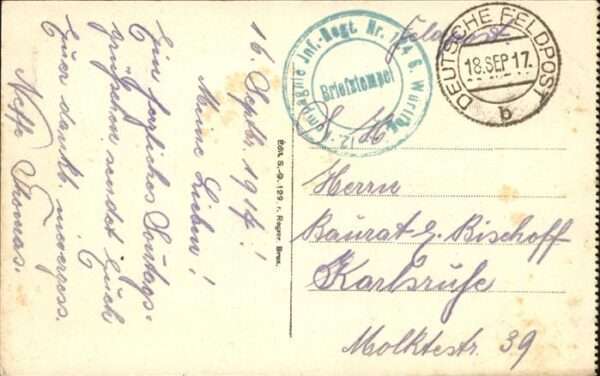 16. Septbr. 1917!
Meine Lieben!
Ein herzliches Sonntags-
grüßchen sendet Euch
Euer dankb. unvergess.
Neffe Thomas.
Edit. S.-D. 129. r. Roger Brux.
Kompagnie Inf.-Regt. Nr. 6. Württb.
12.
Briefstempel
Feldpost
DEUTSCHE FELDPOST
18.SEP 17.
b
Herrn
Baurat z. Bischoff
Karlsruhe
Moltkestr. 39